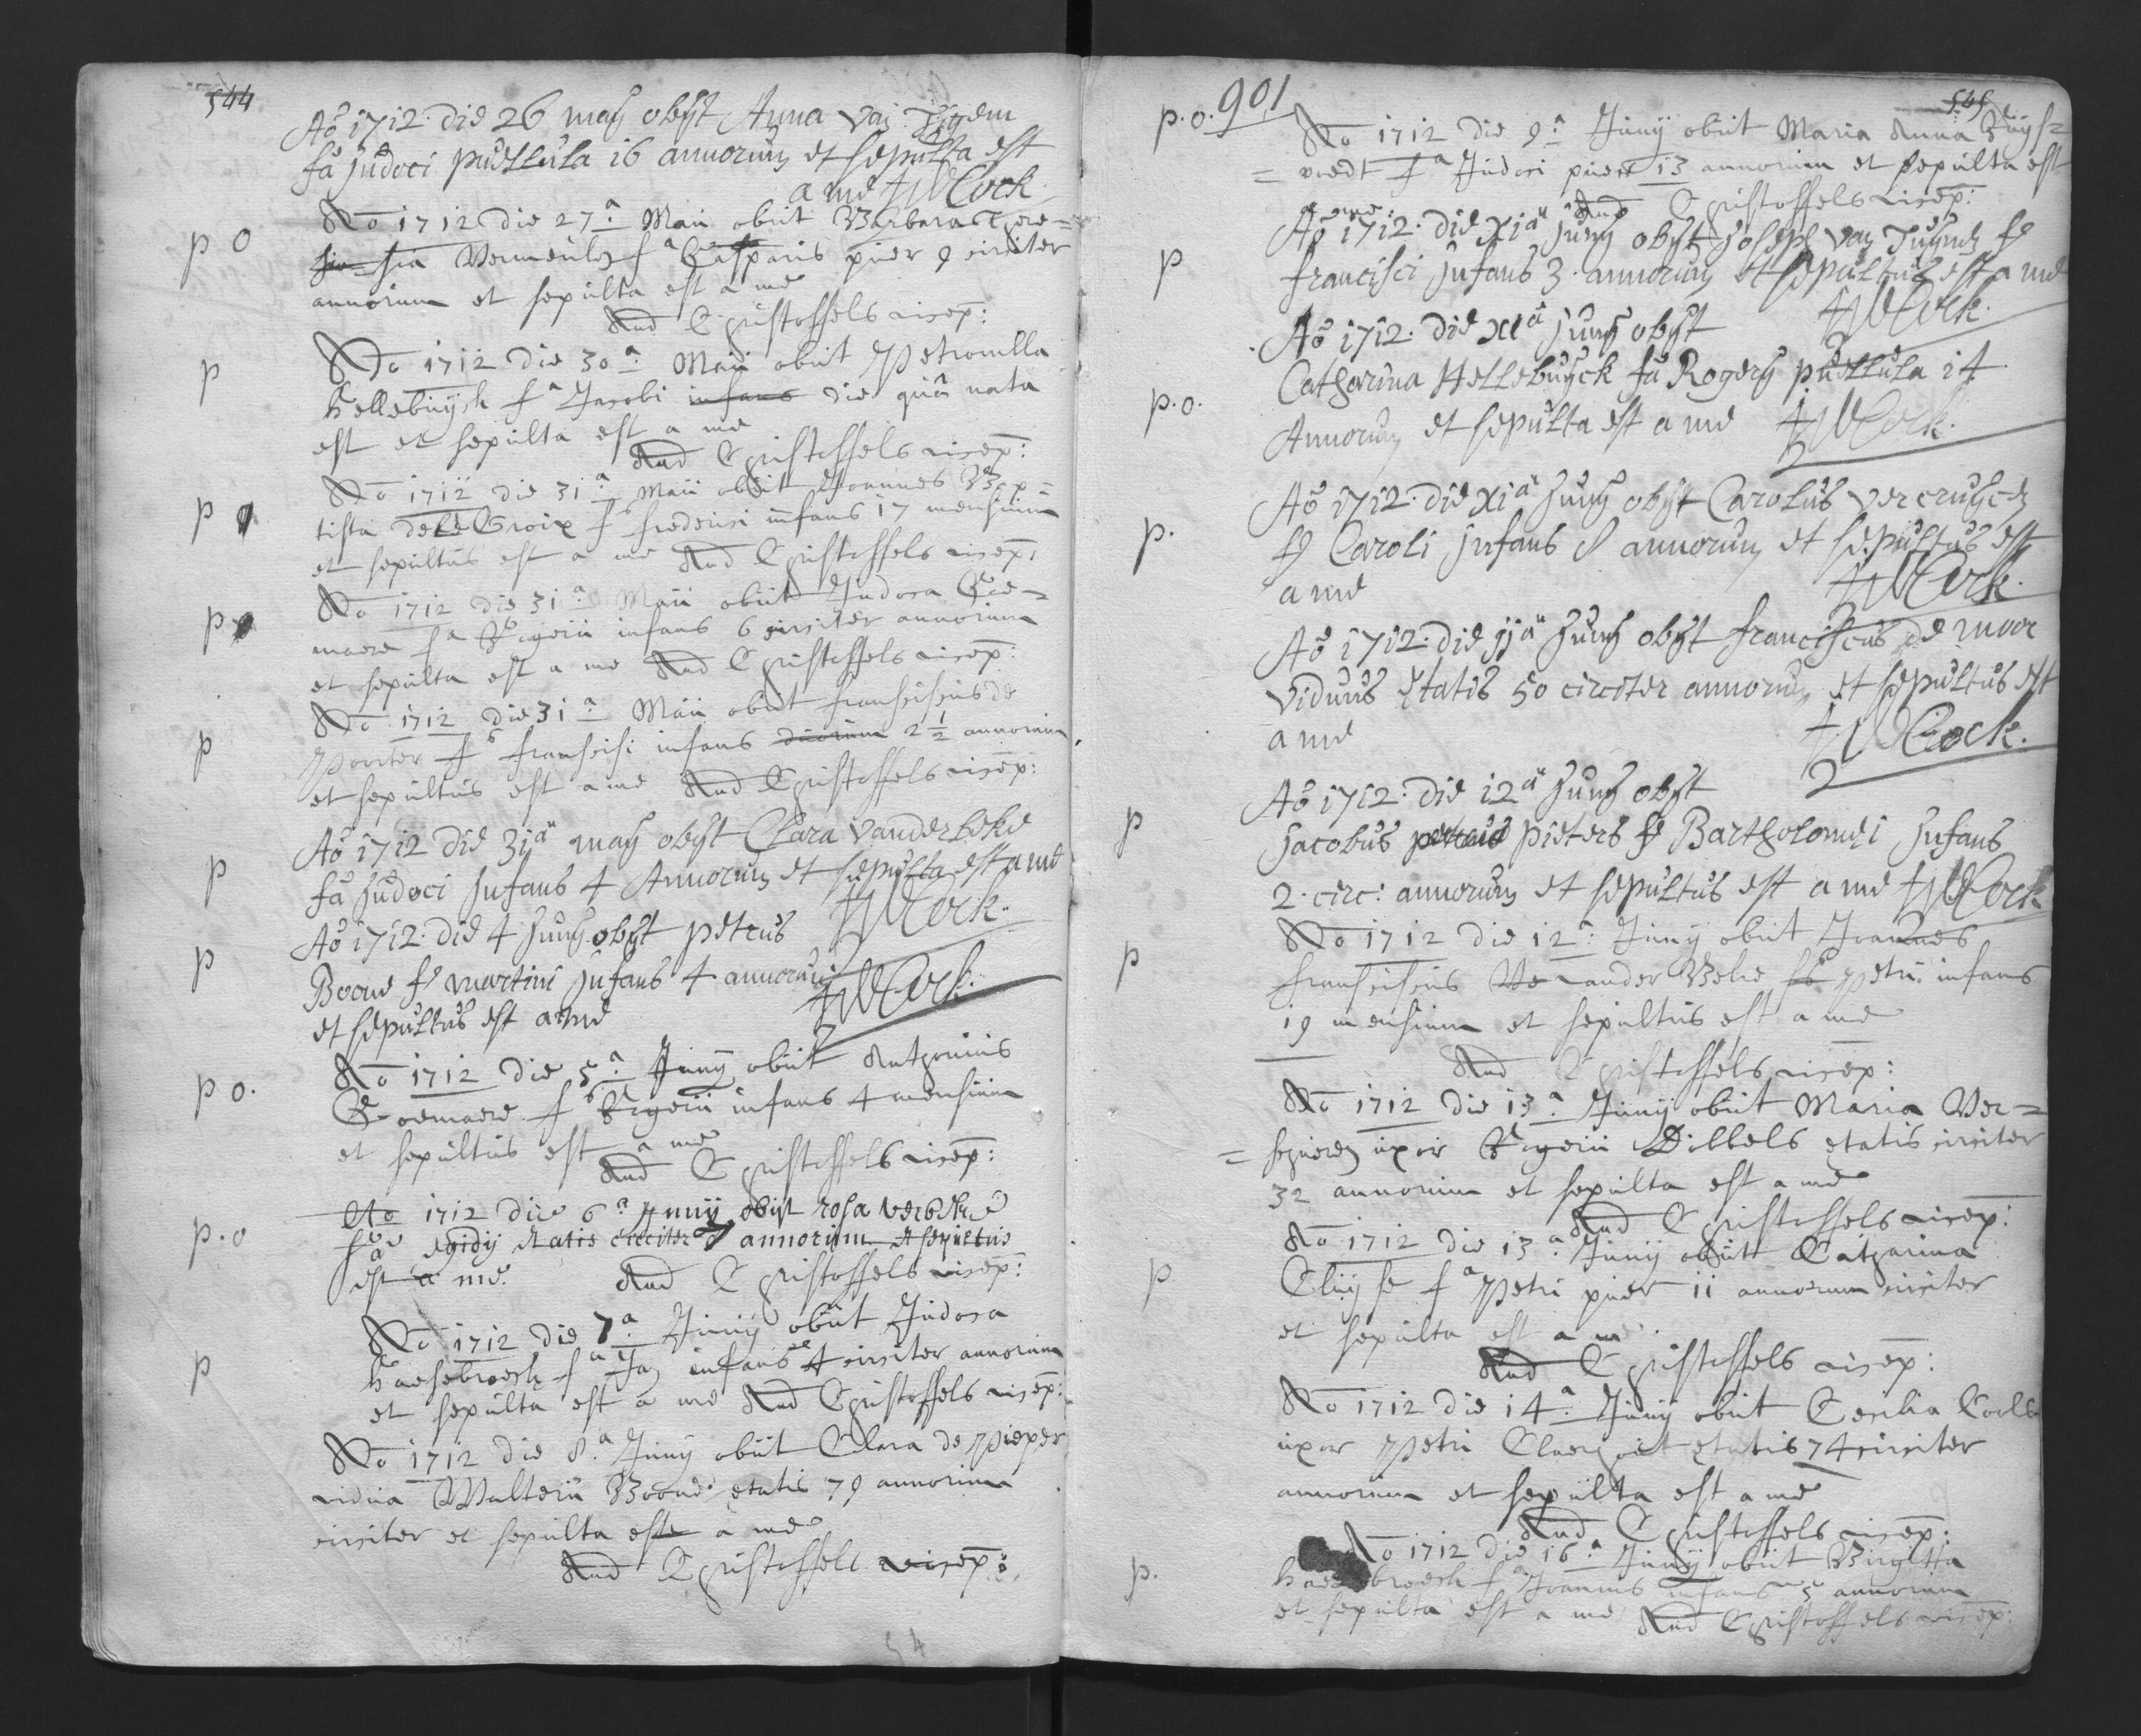 544
Ao 1712 die 26 maij obijt Anna van
fa Judoci puellula 16 annorum et sepulta est
a me Cock
p o
Ao 1712 die 27a Maii obiit Barbara There=
sia Vermeulen fa Casparis puer 9 circiter
annorum et sepulta est a me
And Christoffels vicep:
p
Ao 1712 die 30a Maii obiit Petronilla
hellebuijck fa Jacobi infans die quâ nata
est et sepulta est a me
And Christoffels vicep:
p
Ao 1712 die 31a Maii obiit Joannes Bap=
tista de le Croix fs frederici infans 17 mensium
et sepultus est a me And Christoffels vicep:
p
Ao 1712 die 31a Maii obiit Judoca Goe=
maere fa Rogerii infans 6 circiter annorum
et sepulta est a me And Christoffels vicep:
p
Ao 1712 die 31a Maii obiit franciscus de
Poorter fs francisci infans duorum 2 1/2 annorum
et sepultus est a me And Christoffels vicep:
p
Ao 1712 die 31a maij obijt Clara vanderbeke
fa Judoci Infans 4 Annorum et sepulta est a me
Cock.
p
Ao 1712 die 4 Junij obijt petrus
Boone fs martini Infans 4 annorum
et sepultus est a me Cock.
p o.
Ao 1712 die 5a Junij obiit Anthonius
Goemaere fs Rogerii infans 4 mensium
et sepultus est a me
And Christoffels vicep:
p. o
Ao 1712 die 6a Junij obijt rosa verbeke
fa egidij etatis circiter 7 annorum et sepultus
est a me. And Christoffels vicep:
p
Ao 1712 die 7a Junij obiit Judoca
haesebroeck fa Jan infans 4 circiter annorum
et sepulta est a me And Christoffels vicep:
Ao 1712 die 8a Junij obiit Clara de Pieper
vidua Walterii Boone etatis 79 annorum
circiter et sepulta est a me
And Christoffels vicep:
54
901
545
p. o.
Ao 1712 die 9a Junij obiit Maria Anna
fa Judoci puer 13 annorum et sepulta est
a me And Christoffels vicep:
p
Ao 1712 die xia Junij obijt Joseph van fs
francisci Infans 3 annorum et sepultus est a me
Cock.
p. o.
Ao 1712 die xia Junij obijt
Catharina Hellebuyck fa Rogerij puellula 14
Annorum et sepulta est a me Cock.
p.
Ao 1712 die xia Junij obijt Carolus vercruijcen
fs Caroli Infans 8 annorum et sepultus est
a me Cock.
Ao 1712 die jja Junij obijt franciscus de moor
viduus etatis 50 circiter annorum et sepultus est
a me Cock.
p
Ao 1712 die 12a Junij obijt
Jacobus pieters fs Bartholomei Infans
2 circ: annorum et sepultus est a me Cock
p
Ao 1712 die 12a Junij obiit Joannes
franciscus Vander Beke fs Petri infans
19 mensium et sepultus est a me
And Christoffels vicep:
Ao 1712 die 13a Junij obiit Maria Ver=
= uxor Rogerii Dobbels etatis circiter
32 annorum et sepulta est a me
And Christoffels vicep:
p
Ao 1712 die 13a Junij obiit Catharina
Cluyse fa Petri puer 11 annorum circiter
et sepulta est a me
And Christoffels vicep:
Ao 1712 die 14a Junij obiit Cecilia
uxor Petri Claerhout etatis 74 circiter
annorum et sepulta est a me
And Christoffels vicep:
p.
Ao 1712 die 16a Junij obiit Birgitta
haesebroeck fa Joannis infans 5 annorum
et sepulta est a me And Christoffels vicep: